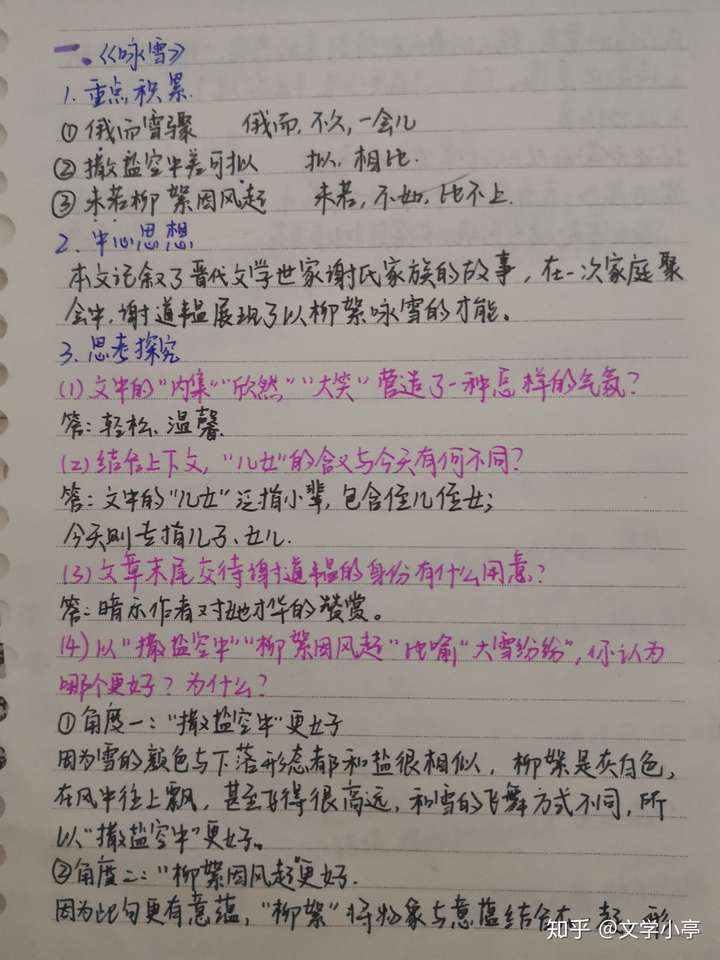 一.《咏雪》
1. 重点积累
① 俄而雪骤 俄而,不久,一会儿
② 撒盐空中差可拟 拟,相比.
③ 未若柳絮因风起 未若,不如,比不上.
2. 中心思想
本文记叙了晋代文学世家谢氏家族的故事,在一次家庭聚
会中,谢道韫展现了以柳絮咏雪的才能。
3. 思考探究
(1) 文中的"内集""欣然""大笑"营造了一种怎样的气氛?
答:轻松、温馨.
(2) 结合上下文,"儿女"的含义与今天有何不同?
答:文中的"儿女"泛指小辈,包含侄儿侄女;
今天则专指儿子、女儿.
(3) 文章末尾交待谢道韫的身份有什么用意?
答:暗示作者对她才华的赞赏。
(4) 以"撒盐空中""柳絮因风起"比喻"大雪纷纷",你认为
哪个更好?为什么?
① 角度一:"撒盐空中"更好
因为雪的颜色与下落形态都和盐很相似,柳絮是灰白色,
在风中往上飘,甚至飞得很高远,和雪的飞舞方式不同,所
以"撒盐空中"更好。
② 角度二:"柳絮因风起"更好.
因为此句更有意蕴,"柳絮"将物象与意蕴结合在一起,形
知乎 @文学小亭